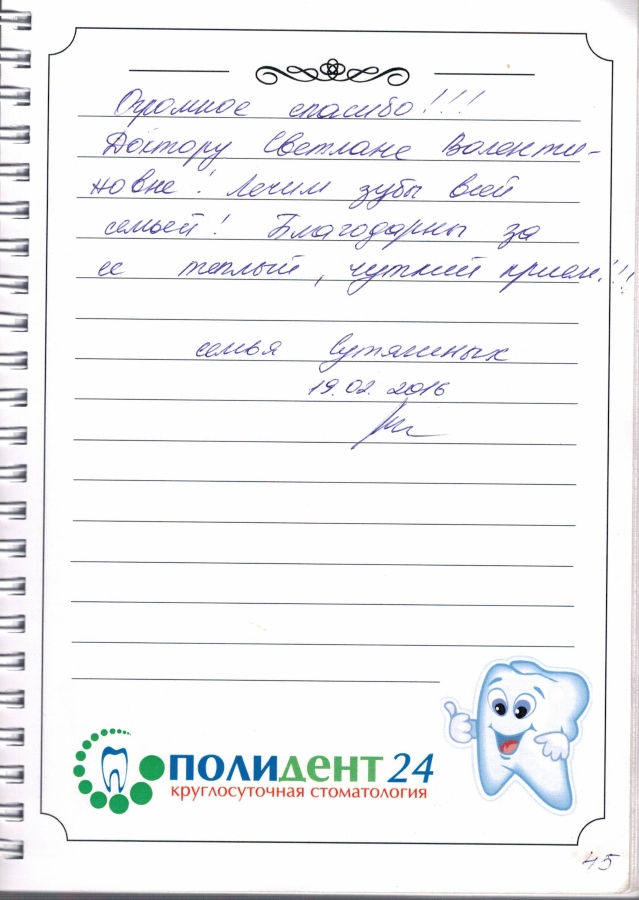 Огромное спасибо!!!
Доктору Светлане Валенти-
новне! Лечим зубы всей
семьей! Благодарны за
ее теплый, чуткий прием!!!
семья
19.02.2016
ПОЛИДЕНТ 24
круглосуточная стоматология
45